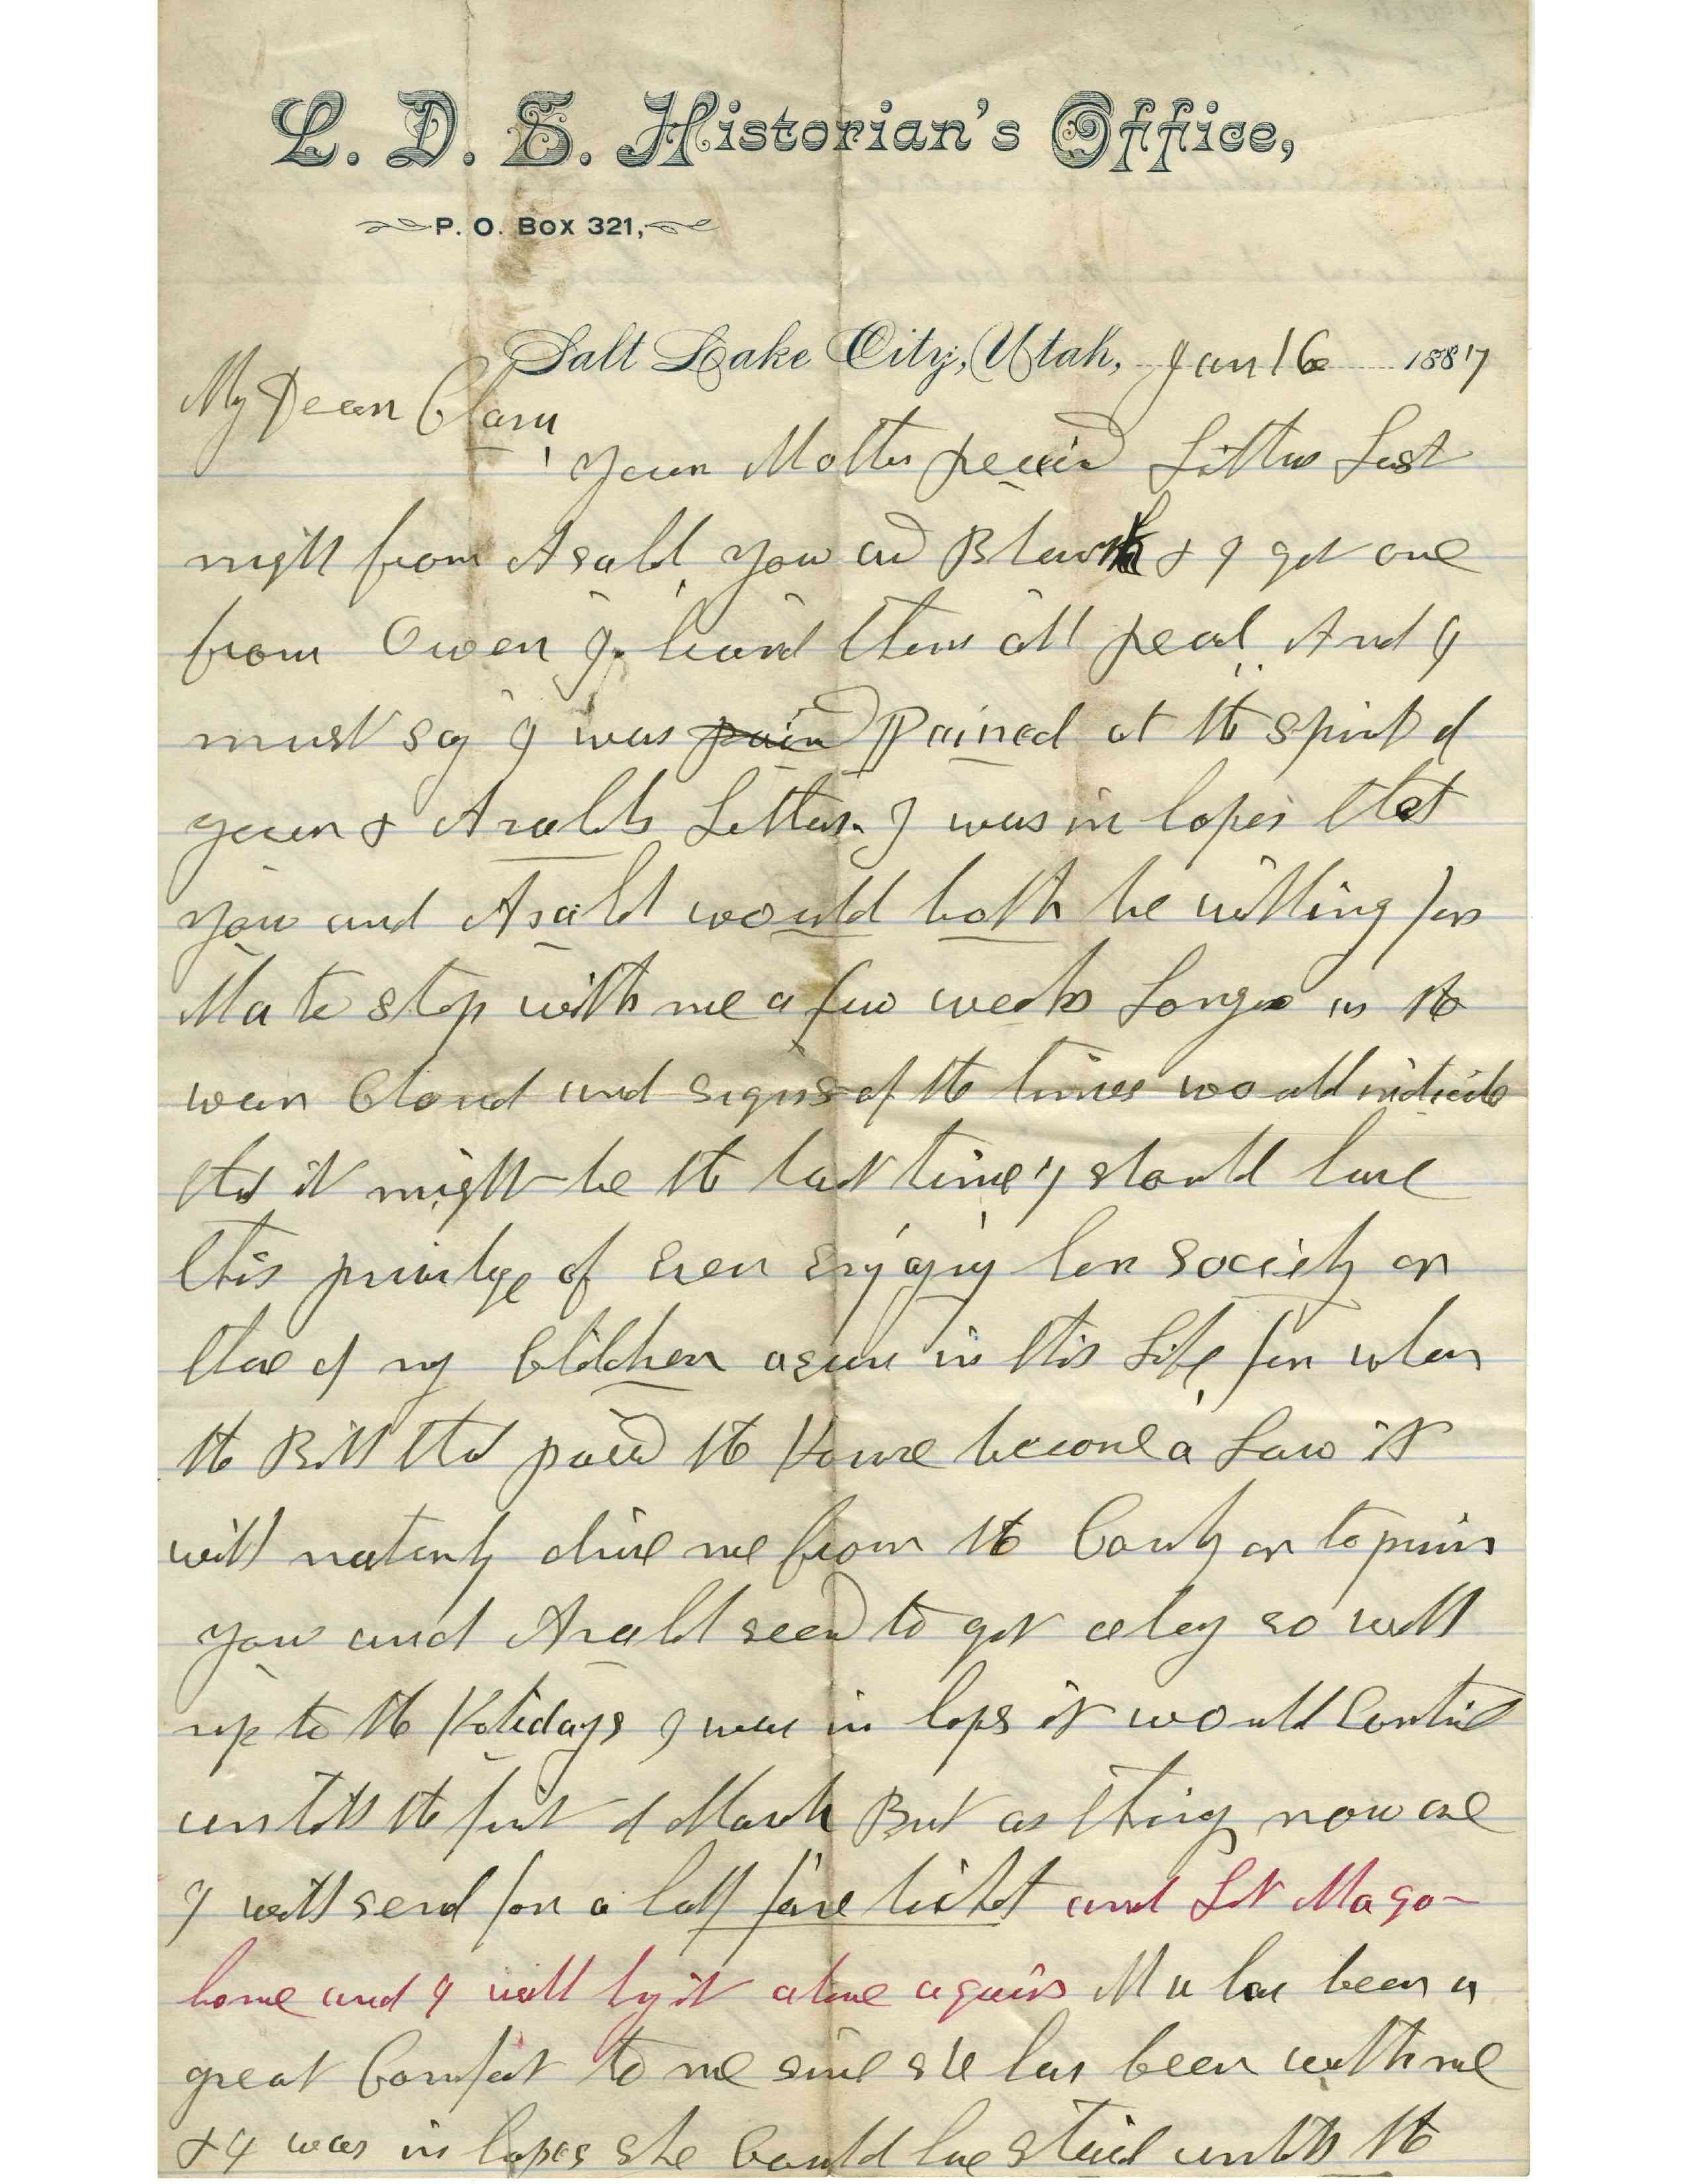 L. D. S. Historian's Office,
P. O. Box 321,
Salt Lake City, Utah, Jan 16 1887
My Dear Clara
Your Mother receivd Letters Last
night from Asahel, You and Blanch & I got one
from Owen I heard them all read And I
must say I was pain Pained at the spirit of
your & Asahels Letters. I was in hopes that
you and Asahel would both be willing for
Ma to stop with me a few weeks Longer as the
war Cloud and signs of the times would indicate
that it might be the last time I should have
this privilege of ever enjoying her society or
that of my Children again in this Life, for when
the Bill that passd the House become a Law it
will naturaly drive me from the County or to prison
You and Asahel seemd to get along so well
up to the Holidays I was in hopes it would Continue
untill the first of March But as things now are
I will send for a half fare ticket and Let Ma go
home and I will try it alone again Ma has been a
great Comfort to me since she has been with me
& I was in hopes she Could have staid untill the